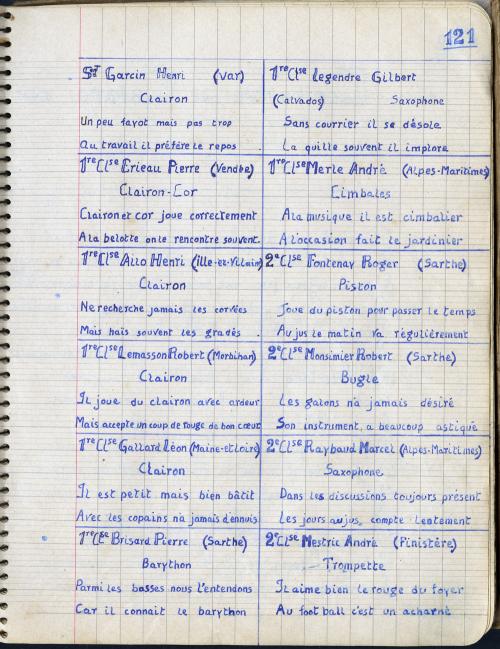 121
Sgt Garcin Henri (Var)
Clairon
Un peu fayot mais pas trop
Au travail il préfère le repos.
1re Clse Erieau Pierre (Vendée)
Clairon-Cor
Clairon et cor joue correctement
A la belotte on le rencontre souvent.
1re Clse Allo Henri (ille-et-Vilain)
Clairon
Ne recherche jamais les corvées
Mais hais souvent les gradés.
1re Clse Lemasson Robert (Morbihan)
Clairon
Il joue du clairon avec ardeur
Mais accepte un coup de rouge de bon cœur
1re Clse Gallard Léon (Maine-et Loire)
Clairon
Il est petit mais bien bâtit
Avec les copains n'a jamais d'ennuis
1re Clse Brisard Pierre (Sarthe)
Barython
Parmi les basses nous l'entendons
Car il connait le barython
1re Clse Legendre Gilbert
(Calvados) Saxophone
Sans courrier il se désole
La quille souvent il implore
1re Clse Merle André (Alpes-Maritimes)
Cimbales
A la musique il est cimbalier
A l'occasion fait le jardinier
2e Clse Fontenay Roger (Sarthe)
Piston
Joue du piston pour passer le temps
Au jus le matin va régulièrement
2e Clse Monsimier Robert (Sarthe)
Bugle
Les galons n'a jamais désiré
Son instrument, a beaucoup astiqué
2e Clse Raybaud Marcel (Alpes-Maritimes)
Saxophone
Dans les discussions toujours présent
Les jours au jus, compte lentement
2e Clse Mestric André (Finistère)
Trompette
Il aime bien le rouge du foyer
Au foot ball c'est un acharné